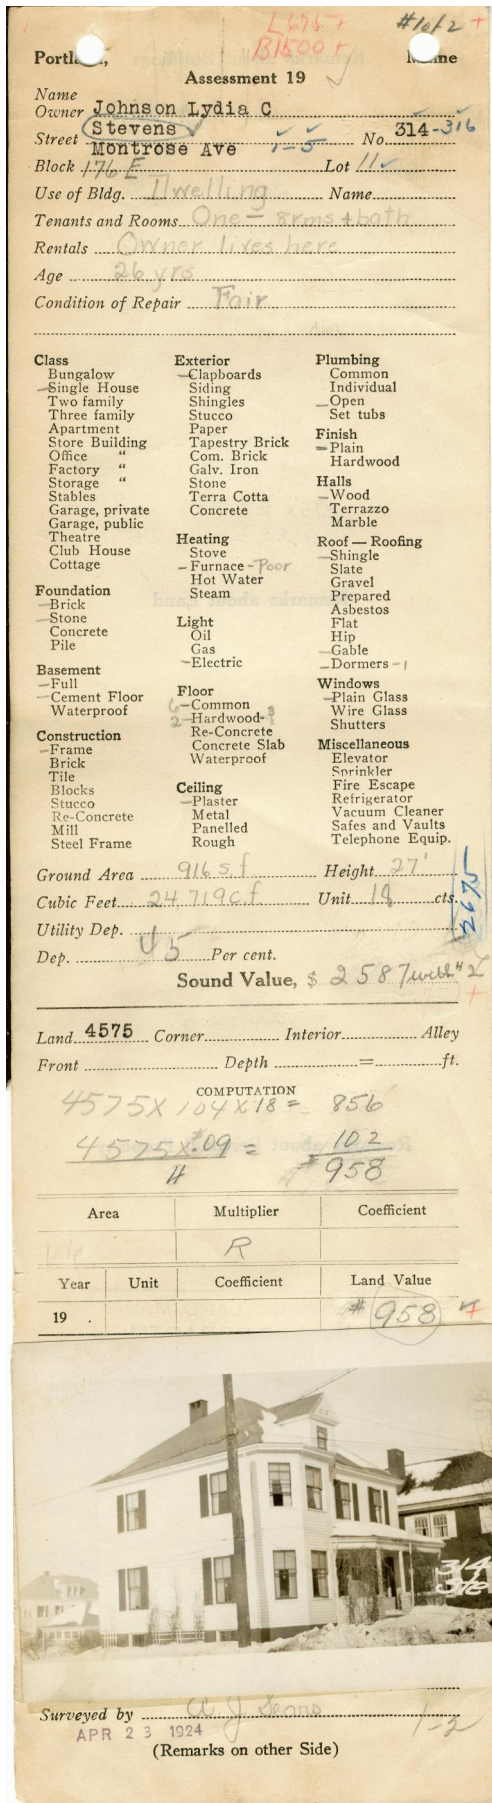 L675 +
B1500 +
#1 of 2 +
Portland, Maine
Assessment 19
Name
Owner Johnson Lydia C
Street Stevens No. 314-316
Montrose Ave 1-5
Block 176 E Lot 11
Use of Bldg. Dwelling Name
Tenants and Rooms One - 8rms + bath
Rentals Owner lives here
Age 26 yrs
Condition of Repair Fair
Class
Bungalow
Single House
Two family
Three family
Apartment
Store Building
Office "
Factory "
Storage "
Stables
Garage, private
Garage, public
Theatre
Club House
Cottage
Foundation
Brick
Stone
Concrete
Pile
Basement
Full
Cement Floor
Waterproof
Construction
Frame
Brick
Tile
Blocks
Stucco
Re-Concrete
Mill
Steel Frame
Exterior
Clapboards
Siding
Shingles
Stucco
Paper
Tapestry Brick
Com. Brick
Galv. Iron
Stone
Terra Cotta
Concrete
Heating
Stove
Furnace - Poor
Hot Water
Steam
Light
Oil
Gas
Electric
Floor
6 - Common
2 - Hardwood - 3
Re-Concrete
Concrete Slab
Waterproof
Ceiling
Plaster
Metal
Panelled
Rough
Plumbing
Common
Individual
Open
Set tubs
Finish
Plain
Hardwood
Halls
Wood
Terrazzo
Marble
Roof — Roofing
Shingle
Slate
Gravel
Prepared
Asbestos
Flat
Hip
Gable
Dormers - 1
Windows
Plain Glass
Wire Glass
Shutters
Miscellaneous
Elevator
Sprinkler
Fire Escape
Refrigerator
Vacuum Cleaner
Safes and Vaults
Telephone Equip.
Ground Area 916 s.f. Height 27'
Cubic Feet 24,719 c.f. Unit 18 cts.
2675
Utility Dep.
Dep. 45 Per cent.
Sound Value, $ 2587 with #2
+
Land 4575 Corner Interior Alley
Front Depth = ft.
COMPUTATION
4575 X 104 X 18 = 856
4575 X .09 = 102
4 $958
Area Multiplier Coefficient
R
Year Unit Coefficient Land Value
19 . $ 958 +
314
316
Surveyed by W. J. Sears
APR 23 1924
1-2
(Remarks on other Side)